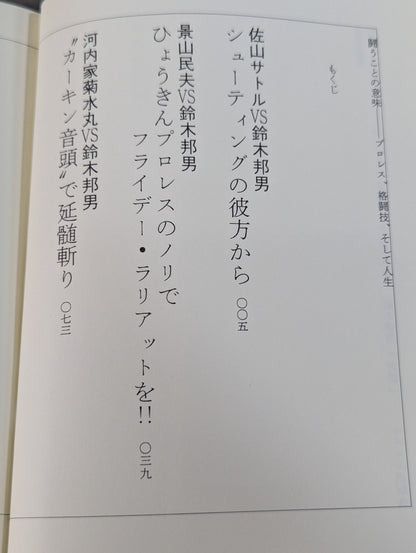 闘うことの意味——プロレス、格闘技、そして人生
もくじ
佐山サトルVS鈴木邦男
シューティングの彼方から 〇〇五
景山民夫VS鈴木邦男
ひょうきんプロレスのノリで
フライデー・ラリアットを!! 〇三九
河内家菊水丸VS鈴木邦男
〝カーキン音頭〟で延髄斬り 〇七三